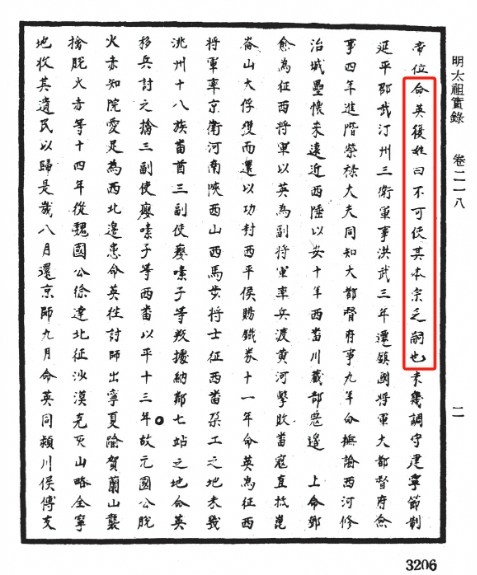 明太祖實錄 卷二一八 二
帝位命英復姓曰不可使其本宗乏嗣也未幾調守建寧節制
延平邵武汀州三衛軍事洪武三年遷鎮國將軍大都督府僉
事四年進階榮祿大夫同知大都督府事九年命撫諭西河修
治城壘懷來遠近西陲以安十年西畨川藏部邀 上命鄧
愈為征西將軍以英為副將軍率兵渡黃河擊敗畨寇直抵崑
崙山大俘獲而還以功封西平侯賜鐵券十一年命英為征西
將軍率京衛河南陝西山西馬步將士征西畨朶工之地未戰
洮州十八族畨酋三副使癭嗉子等叛據納鄰七站之地命英
移兵討之擒三副使癭嗉子等西畨以平十三年故元國公脫
火赤知院愛足為西北邊患命英往討師出寧夏踰賀蘭山襲
擒脫火赤等十四年從魏國公徐達北征沙漠克灰山略全寧
地收其遺民以歸是歲八月還京師九月命英同潁川侯傅友
3206